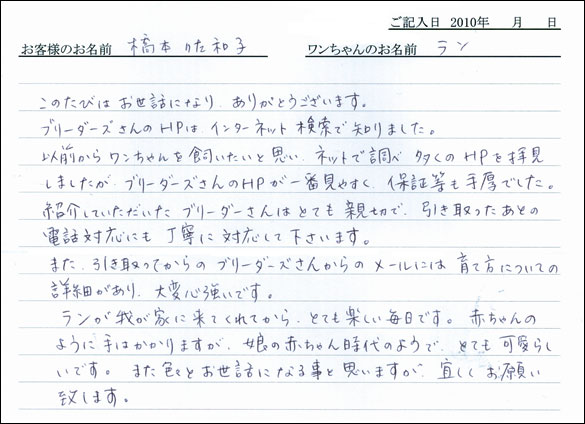 ご記入日 2010年 月 日
お客様のお名前 橋本 佐和子 ワンちゃんのお名前 ラン
このたびは お世話になり、ありがとうございます。
ブリーダーズさんのHPは、インターネット検索で知りました。
以前から ワンちゃんを飼いたいと思い、ネットで調べ 多くのHPを拝見
しましたが、ブリーダーズさんのHPが一番見やすく、保証等も手厚でした。
紹介していただいた ブリーダーさんはとても親切で、引き取ったあとの
電話対応にも丁寧に対応して下さいます。
また、引き取ってからの ブリーダーズさんからのメールには 育て方についての
詳細があり、大変心強いです。
ランが我が家に来てくれてから、とても楽しい毎日です。赤ちゃんの
ように手はかかりますが、娘の赤ちゃん時代のようで、とても可愛らし
いです。また色々とお世話になる事と思いますが、宜しくお願い
致します。